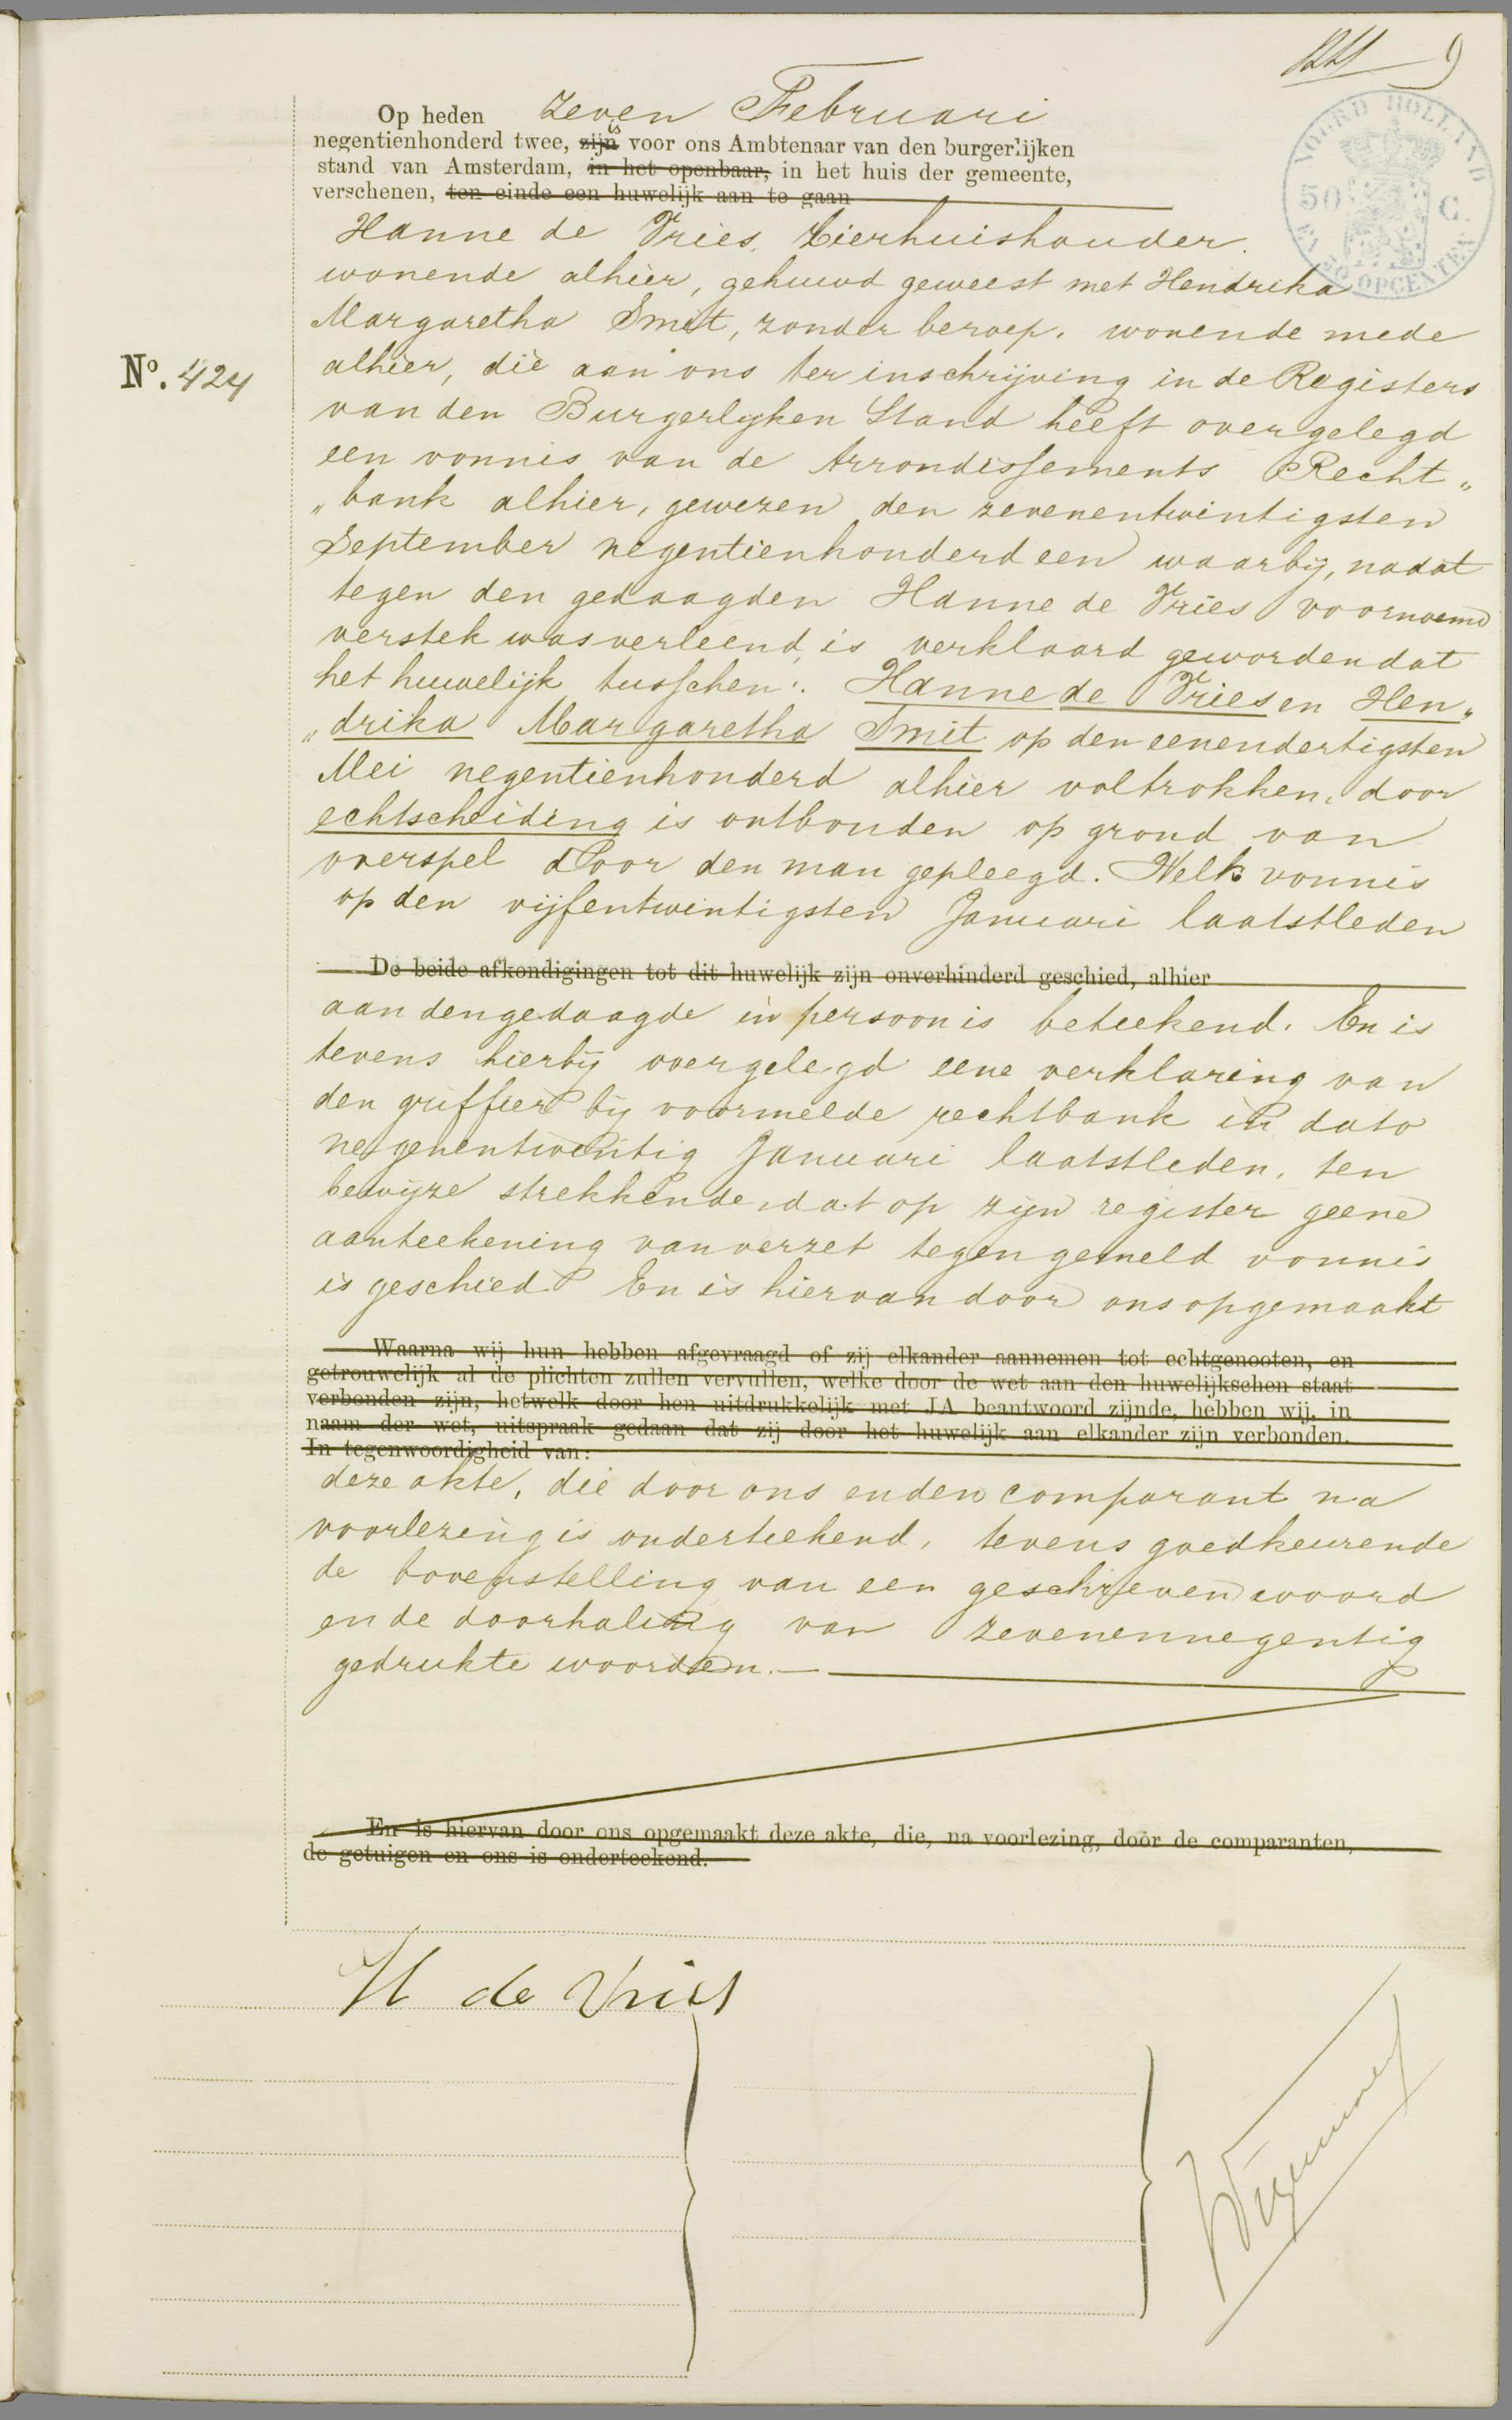 Op heden zeven Februari
negentienhonderd twee, zijn is voor ons Ambtenaar van den burgerlijken
stand van Amsterdam, in het openbaar, in het huis der gemeente,
verschenen, ten einde een huwelijk aan te gaan
Hanne de Vries, bierhuishouder.
wonende alhier, gehuwd geweest met Hendrika
Margaretha Smit, zonder beroep, wonende mede
alhier, die aan ons ter inschrijving in de Registers
No. 424
van den Burgerlijken Stand heeft overgelegd
een vonnis van de Arrondissements Recht„
„bank alhier, gewezen den zevenentwintigsten
September negentienhonderd een waarbij, nadat
tegen den gedaagden Hanne de Vries voornoemd
verstek was verleend, is verklaard geworden dat
het huwelijk tusschen: Hanne de Vries en Hen„
„drika Margaretha Smit op den eenendertigsten
Mei negentienhonderd alhier voltrokken, door
echtscheiding is ontbonden op grond van
overspel door den man gepleegd. Welk vonnis
op den vijfentwintigsten Januari laatstleden
De beide afkondigingen tot dit huwelijk zijn onverhinderd geschied, alhier
aan den gedaagde in persoon is beteekend. En is
tevens hierbij overgelegd eene verklaring van
den griffier bij voormelde rechtbank in dato
negenentwintig Januari laatstleden, ten
bewijze strekkende, dat op zijn register geene
aanteekening van verzet tegen gemeld vonnis
is geschied. En is hiervan door ons opgemaakt
Waarna wij hun hebben afgevraagd of zij elkander aannemen tot echtgenooten, en
getrouwelijk al de plichten zullen vervullen, welke door de wet aan den huwelijkschen staat
verbonden zijn, hetwelk door hen uitdrukkelijk met JA beantwoord zijnde, hebben wij, in
naam der wet, uitspraak gedaan dat zij door het huwelijk aan elkander zijn verbonden.
In tegenwoordigheid van:
deze akte, die door ons en den comparant na
voorlezing is onderteekend, tevens goedkeurende
de bovenstelling van een geschreven woord
en de doorhaling van zevenennegentig
gedrukte woorden.
En is hiervan door ons opgemaakt deze akte, die, na voorlezing, door de comparanten,
de getuigen en ons is onderteekend.
H de Vries
NOORD HOLLAND
50 C.
EN 50 OPCENTEN